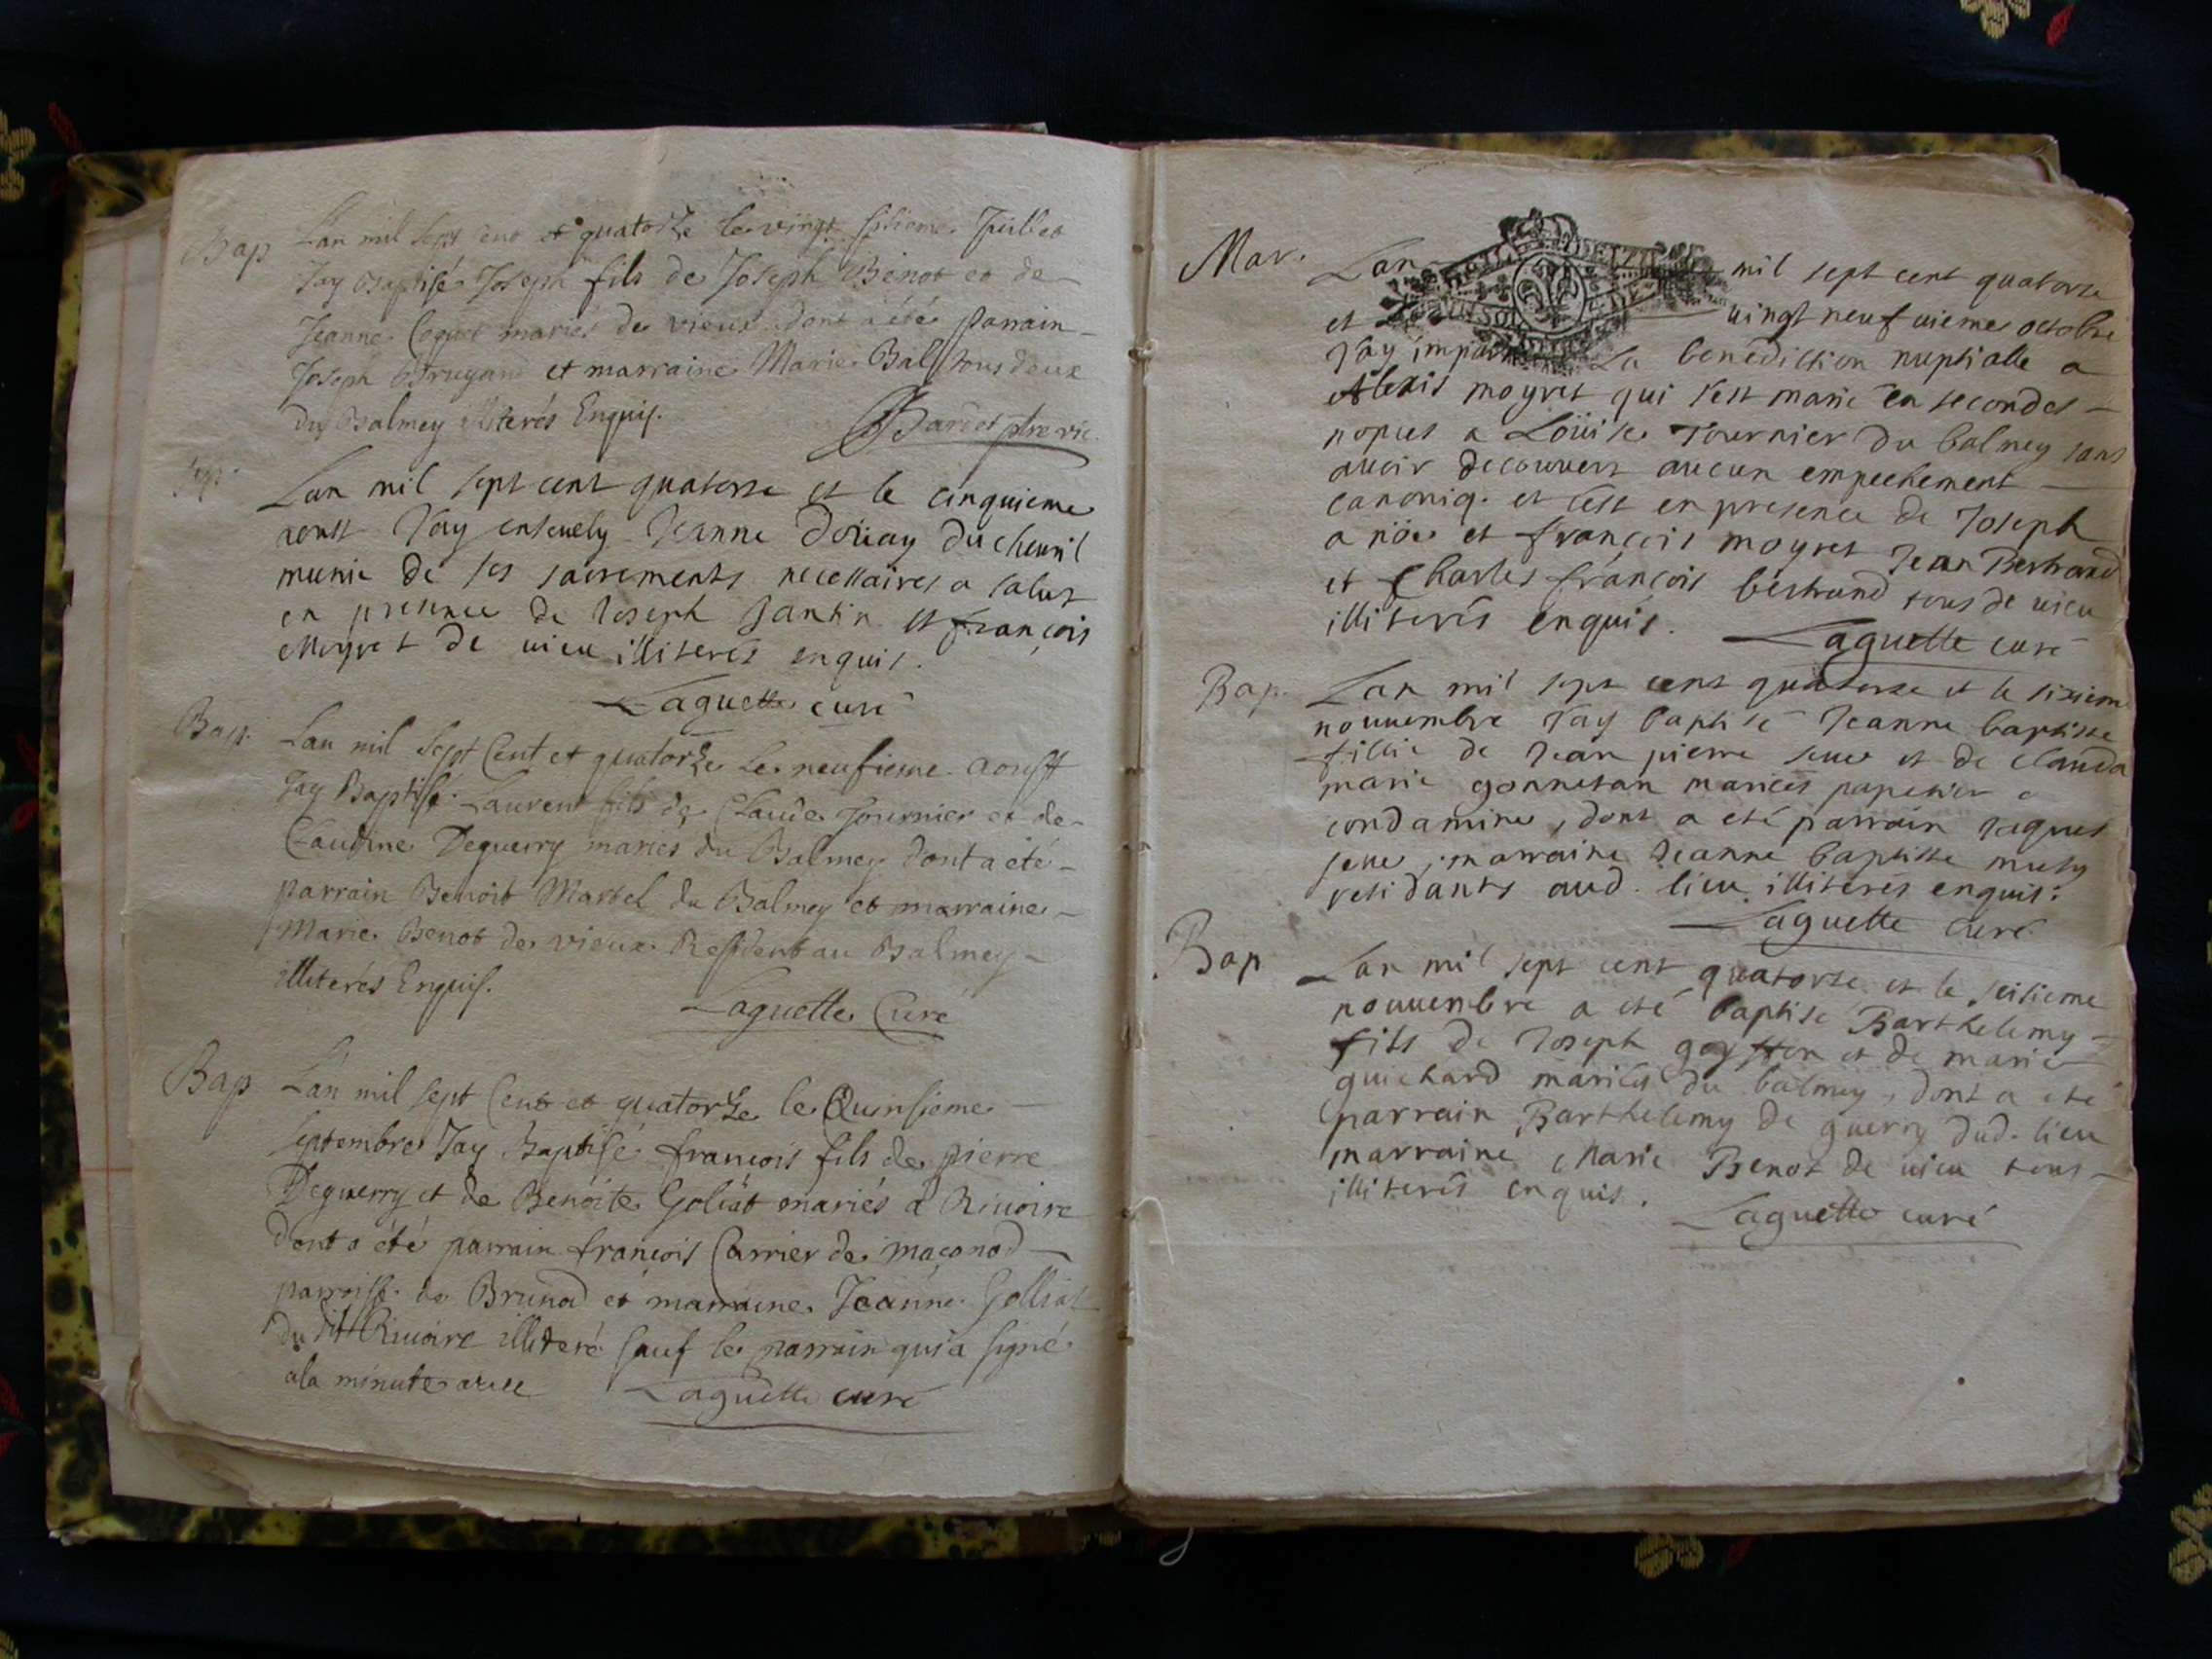 Bap
Lan mil sept cent et quatorze le vingt septieme Juillet
Jay Baptisé Joseph fils de Joseph Benot et de
Jeanne mariés de vieux dont a été parrain
Joseph et marraine Marie Bal tous deux
du Balmey illiterés Enquis.
Bardet ptre vic.
Sep.
Lan mil sept cent quatorse et le cinquieme
aoust Jay ensevely Jeanne Doüay du chevril
munie de ses sacrements necessaires a salut
en presence de Joseph Jantin et françois
Moyret de vieu illiterés enquis.
Laguette curé
Bap.
Lan mil sept Cent et quatorze le neufieme aoust
Jay Baptisé Laurent fils de Claude Tournier et de
Claudine Deguerry mariés du Balmey dont a été
parrain Benoit Martel du Balmey et marraine
Marie Benot de vieux Resident au Balmey
illiterés Enquis.
Laguette Curé
Bap
Lan mil sept Cent et quatorze le Quinsieme
septembre Jay Baptisé francois fils de pierre
Deguerry et de Benoite Goliat mariés a Rivoire
dont a été parrain francois Carrier de maconod
parroisse de Brunod et marraine Jeanne Golliat
du dit Rivoire illiteré sauf le parrain qui a signé
a la minute avec
Laguette curé
Mar.
Lan mil sept cent quatorze
et vingt neuf vieme octobre
Jay imparti La benediction nuptialle a
Alexis moyret qui sest marié en secondes
nopces a Loüise Tournier du balmey sans
avoir decouvert aucun empechement
canoniq. et cest en presence de Joseph
et françois moyret Jean Bertrand
et Charles françois bertrand tous de vieu
illiterés enquis.
Laguette curé
Bap.
Lan mil sept cent quatorse et le sixieme
nouvembre Jay baptisé Jeanne baptiste
fillie de Jean pierre seve et de clauda
marie gonnetan mariés papetier a
condamine, dont a eté parrain Jaques
seve, marraine Jeanne baptiste musy
residants aud. lieu illiterés enquis.
Laguette curé
Bap
Lan mil sept cent quatorse et le seisieme
nouvembre a eté baptisé Barthelemy
fils de Joseph et de marie
guichard mariés du balmey, dont a eté
parrain Barthelemy de guerry dud. lieu
marraine Marie Benot de vieu tous
illiterés enquis.
Laguette curé